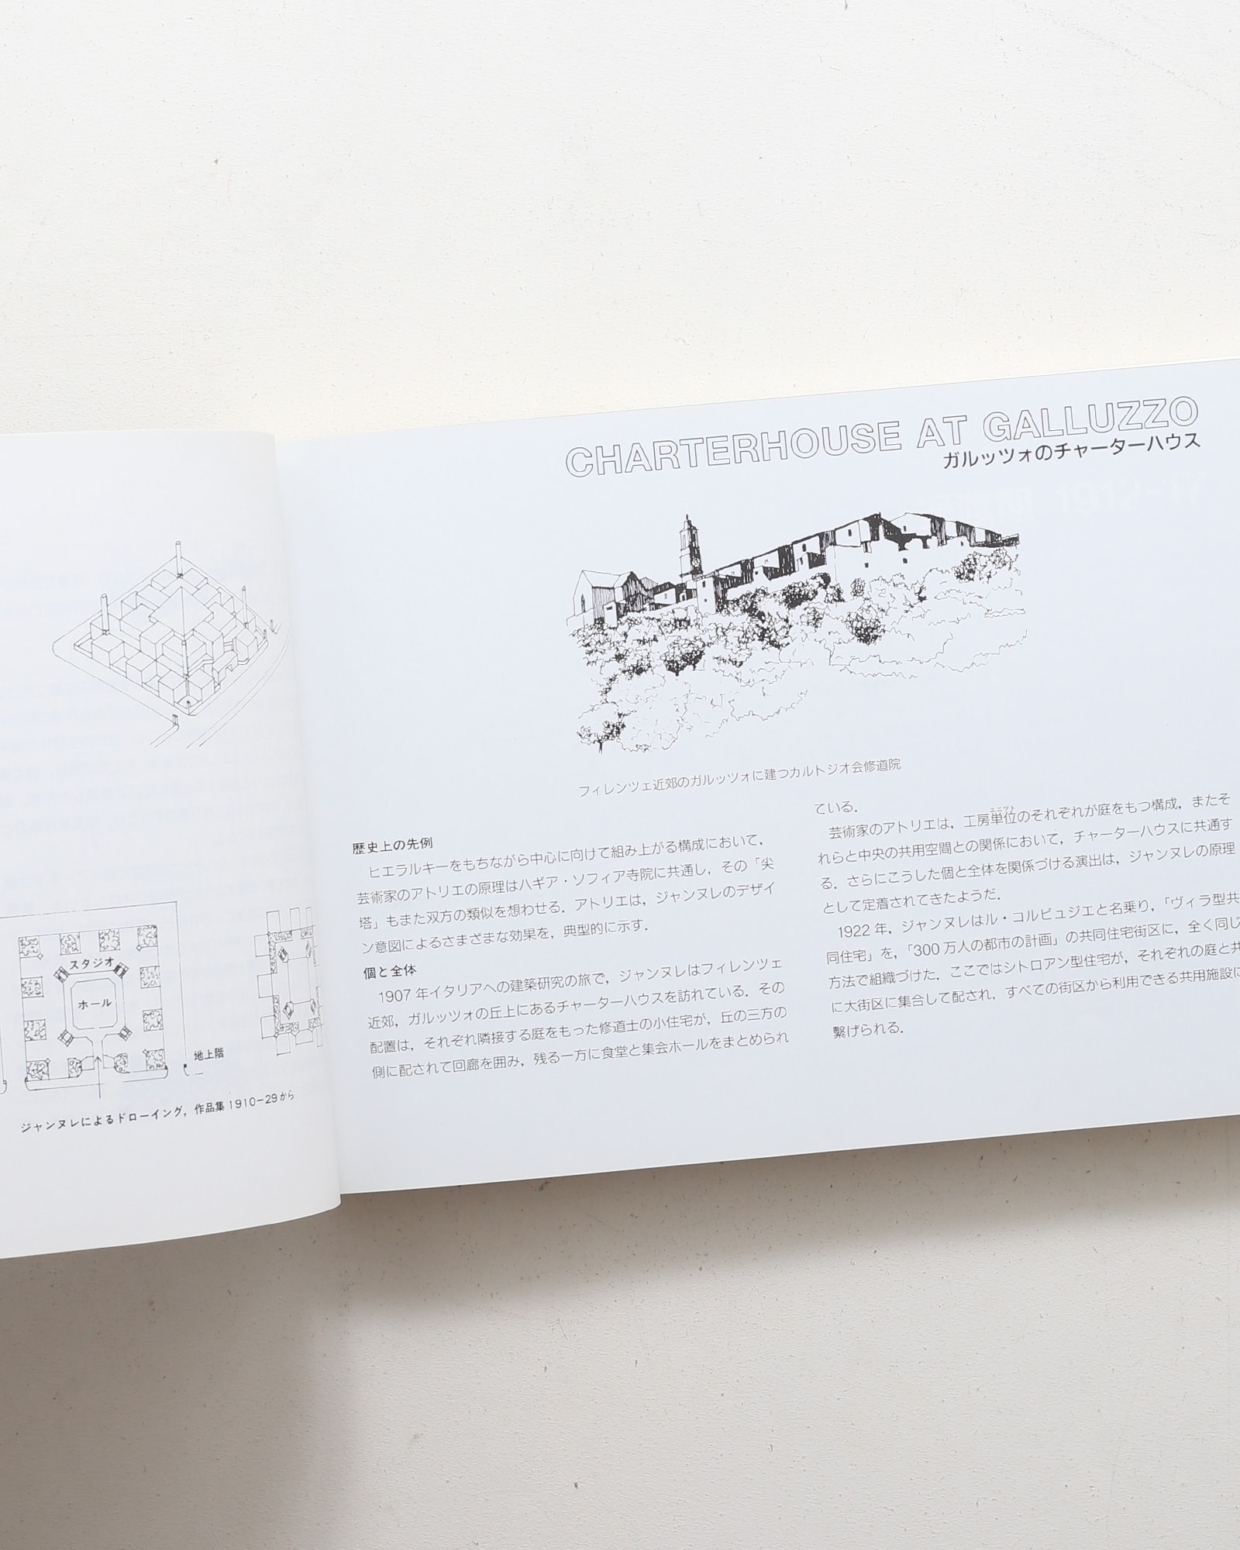 スタジオ
ホール
地上階
ジャンヌレによるドローイング，作品集1910-29から
CHARTERHOUSE AT GALLUZZO
ガルッツォのチャーターハウス
フィレンツェ近郊のガルッツォに建つカルトジオ会修道院
歴史上の先例
ヒエラルキーをもちながら中心に向けて組み上がる構成において，
芸術家のアトリエの原理はハギア・ソフィア寺院に共通し，その「尖
塔」もまた双方の類似を想わせる．アトリエは，ジャンヌレのデザイ
ン意図によるさまざまな効果を，典型的に示す．
個と全体
1907年イタリアへの建築研究の旅で，ジャンヌレはフィレンツェ
近郊，ガルッツォの丘上にあるチャーターハウスを訪れている．その
配置は，それぞれ隣接する庭をもった修道士の小住宅が，丘の三方の
側に配されて回廊を囲み，残る一方に食堂と集会ホールをまとめられ
ている．
芸術家のアトリエは，工房単位のそれぞれが庭をもつ構成，またそ
れらと中央の共用空間との関係において，チャーターハウスに共通す
る．さらにこうした個と全体を関係づける演出は，ジャンヌレの原理
として定着されてきたようだ．
1922年，ジャンヌレはル・コルビュジエと名乗り，「ヴィラ型共
同住宅」を，「300万人の都市の計画」の共同住宅街区に，全く同じ
方法で組織づけた．ここではシトロアン型住宅が，それぞれの庭と共
に大街区に集合して配され，すべての街区から利用できる共用施設に
繋げられる．